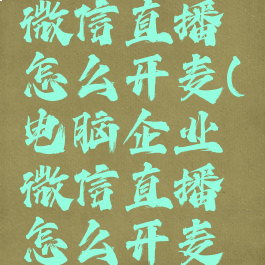 微信直播
怎么开麦(
电脑企业
微信直播
怎么开麦